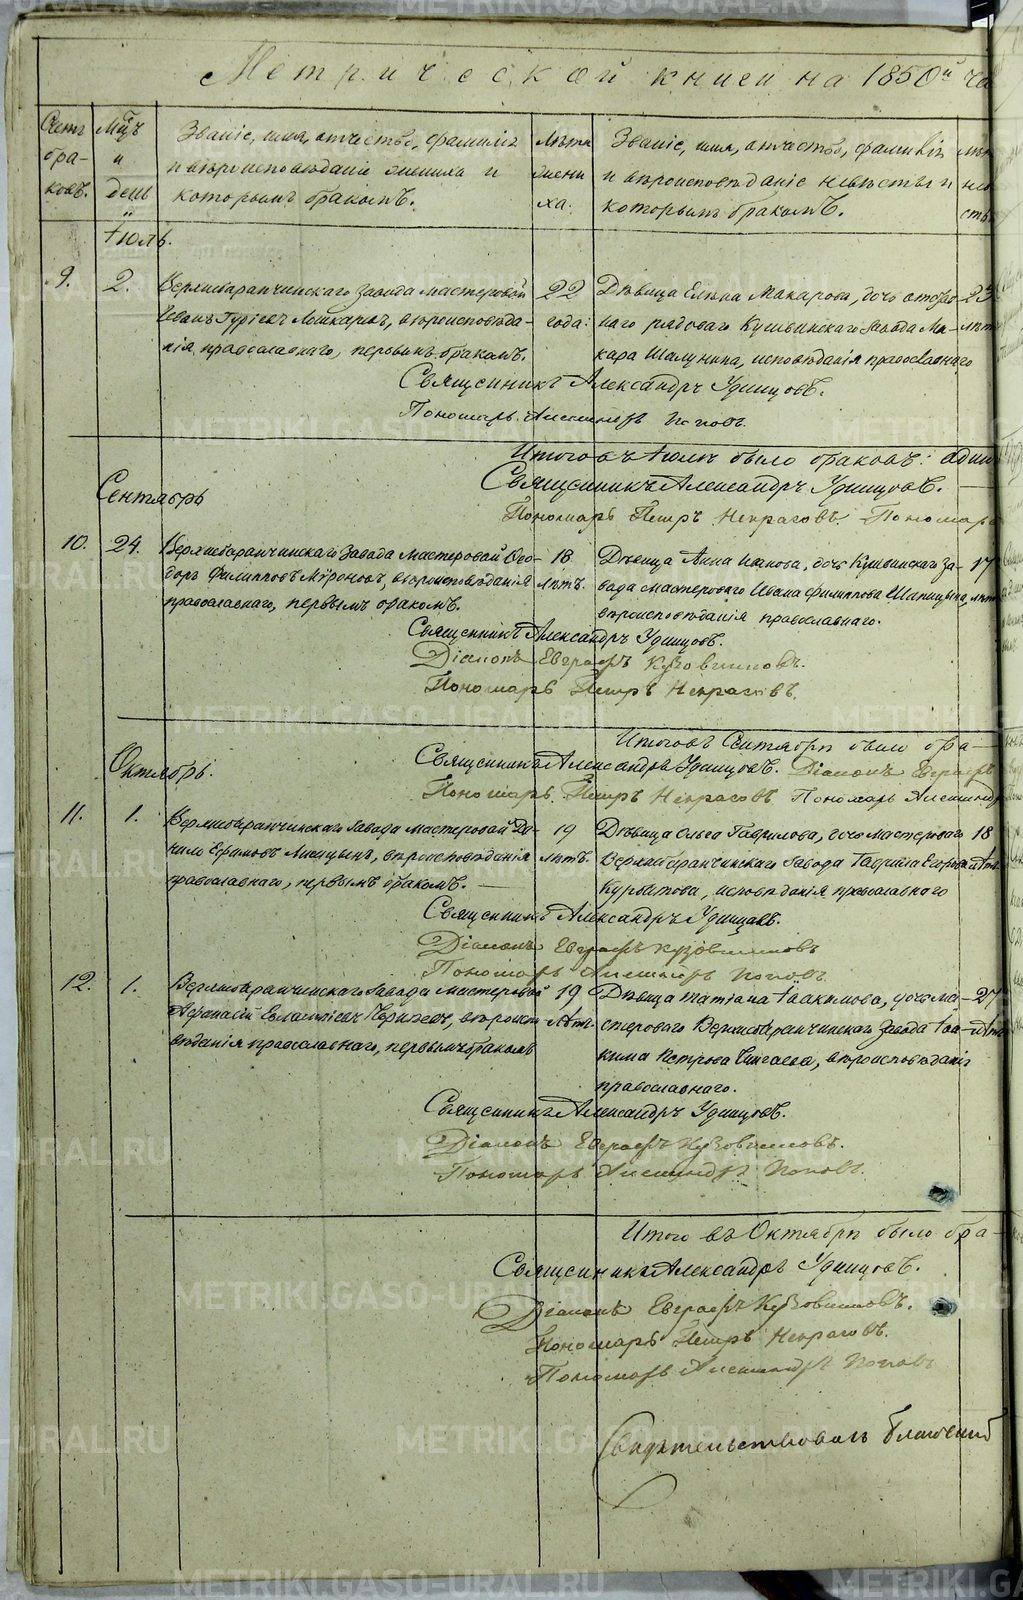 Метрической книги на 1850й ча
Счетъ браковъ.
Мц҃ъ и день
Званіе, имя, отчество, фамилія
и вѣроисповѣданіе жениха и
которымъ бракомъ.
Лѣта жениха.
Званіе, имя, отчество, фамилія
и вѣроисповѣданіе невѣсты и
которымъ бракомъ.
Іюль.
9.
2.
Верхнебаранчинскаго Завода мастеровой
Иванъ Гурiевъ Лошкаревъ, вѣроисповѣда-
нія православнаго, первымъ бракомъ.
22
года.
Дѣвица Елена Макарова, дочь отстав-
наго рядоваго Кушвинскаго Завода Ма-
кара Шалунина, исповѣданія православнаго
23
Священникъ Александръ Удинцовъ.
Пономарь Александръ Поповъ.
Итого въ Іюлѣ было браковъ: одинъ
Священникъ Александръ Удинцовъ.
Пономарь Петръ Некрасовъ. Пономарь
Сентябрь
10.
24.
Верхнебаранчинскаго Завода мастеровой Ѳео-
доръ Филипповъ Мѵроновъ, вѣроисповѣданія
православнаго, первымъ бракомъ.
18
лѣтъ.
Дѣвица Анна Иванова, дочь Кушвинскаго За-
вода мастероваго Ивана Филиппова Шипицына,
вѣроисповѣданія православнаго.
17
лѣтъ
Священникъ Александръ Удинцовъ.
Діаконъ Евграфъ Кузовниковъ.
Пономарь Петръ Некрасовъ.
Итого въ Сентябрѣ было бра-
Октябрь.
Священникъ Александръ Удинцовъ. Діаконъ Евграфъ
Пономарь Петръ Некрасовъ Пономарь Александръ
11.
1.
Верхнебаранчинскаго Завода мастеровой Да-
нило Ефимовъ Лисицынъ, вѣроисповѣданія
православнаго, первымъ бракомъ.
19
лѣтъ.
Дѣвица Ольга Гаврилова, дочь мастероваго
Верхнебаранчинскаго Завода Гаврила Егорова
Курбатова, исповѣданія православнаго
18
Священникъ Александръ Удинцовъ.
Діаконъ Евграфъ Кузовниковъ
Пономарь Александръ Поповъ
12.
1.
Верхнебаранчинскаго Завода мастеровой
Афанасій Евлампіевъ, вѣроиспо-
вѣданія православнаго, первымъ бракомъ
19
лѣтъ.
Дѣвица Татіана Іоакимова, дочь ма-
стероваго Верхнебаранчинскаго Завода Іоа-
кима Петрова, вѣроисповѣданія
православнаго.
27
Священникъ Александръ Удинцовъ.
Діаконъ Евграфъ Кузовниковъ.
Пономарь Александръ Поповъ.
Итого въ Октябрѣ было бра-
Священникъ Александръ Удинцовъ.
Діаконъ Евграфъ Кузовниковъ.
Пономарь Петръ Некрасовъ.
Пономарь Александръ Поповъ
Свидѣтельствовалъ Благочинный
METRIKI.GASO-URAL.RU